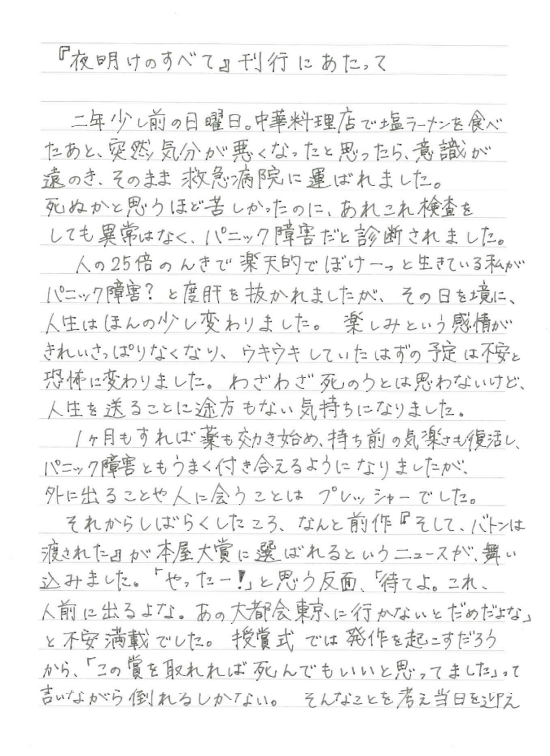 『夜明けのすべて』刊行にあたって
二年少し前の日曜日。中華料理店で塩ラーメンを食べ
たあと、突然気分が悪くなったと思ったら、意識が
遠のき、そのまま救急病院に運ばれました。
死ぬかと思うほど苦しかったのに、あれこれ検査を
しても異常はなく、パニック障害だと診断されました。
人の25倍のんきで楽天的でぼけーっと生きている私が
パニック障害?と度肝を抜かれましたが、その日を境に、
人生はほんの少し変わりました。楽しみという感情が
きれいさっぱりなくなり、ウキウキしていたはずの予定は不安と
恐怖に変わりました。わざわざ死のうとは思わないけど、
人生を送ることに途方もない気持ちになりました。
1ヶ月もすれば薬も効き始め、持ち前の気楽さも復活し、
パニック障害ともうまく付き合えるようになりましたが、
外に出ることや人に会うことはプレッシャーでした。
それからしばらくしたころ、なんと前作『そして、バトンは
渡された』が本屋大賞に選ばれるというニュースが、舞い
込みました。「やったー!」と思う反面、「待てよ。これ、
人前に出るよな。あの大都会東京に行かないとだめだよな」
と不安満載でした。授賞式では発作を起こすだろう
から、「この賞を取れれば死んでもいいと思ってました」って
言いながら倒れるしかない。そんなことを考え当日を迎え